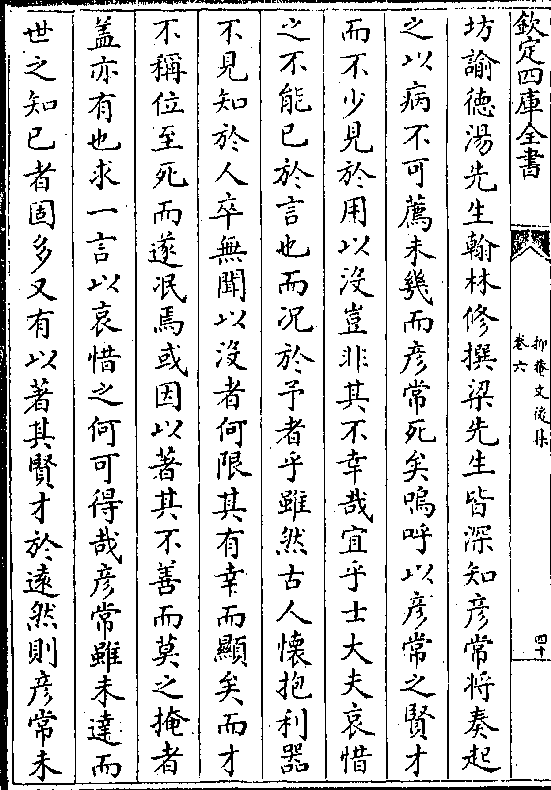 欽定四庫全書
抑菴文後集
卷六
四十
坊諭德湯先生翰林修撰梁先生皆深知彦常將奏起
之以病不可薦未幾而彦常死矣嗚呼以彦常之賢才
而不少見於用以沒豈非其不幸哉宜乎士大夫哀惜
之不能已於言也而况於予者乎雖然古人懐抱利器
不見知於人卒無聞以沒者何限其有幸而顯矣而才
不稱位至死而遂泯焉或因以著其不善而莫之掩者
盖亦有也求一言以哀惜之何可得哉彦常雖未達而
世之知已者固多又有以著其賢才於逺然則彦常未